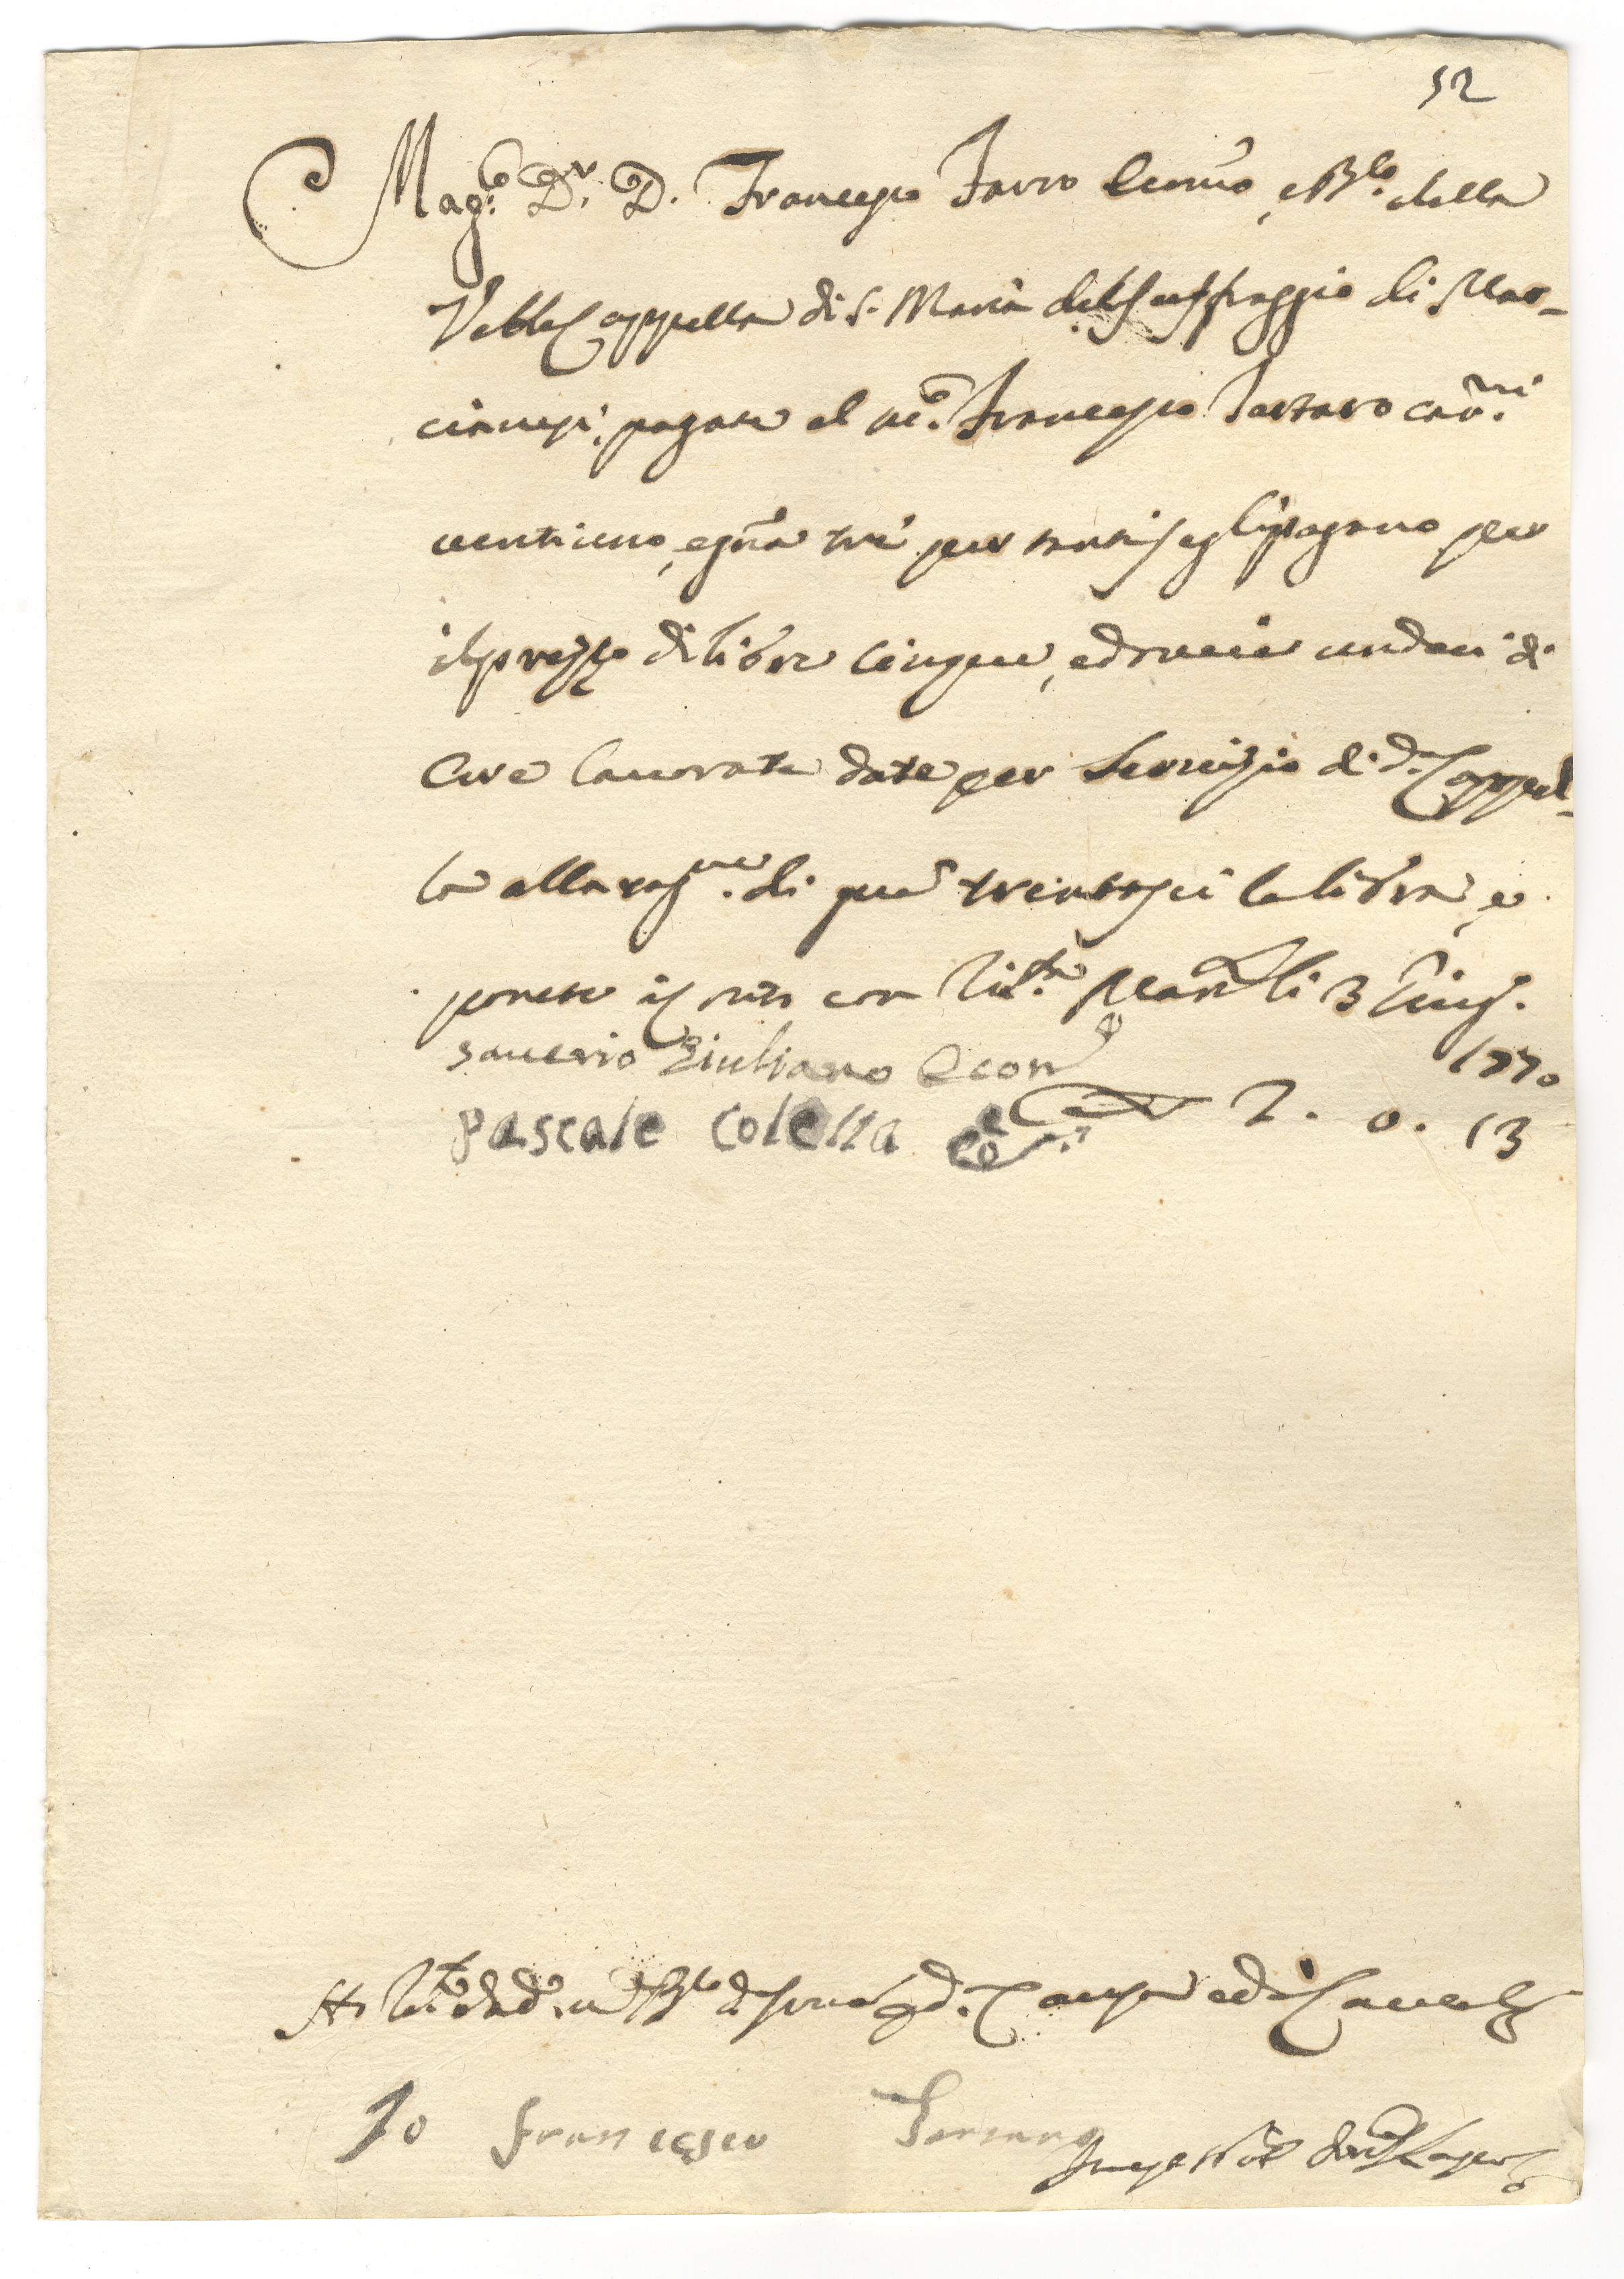 52
Mag.co Dr. D. Francesco Farro Econ̄o, e Bs.lo della
Vēble Cappella di S. Maria del Suffraggio di Mar-
cianesi, pagate al m.o Francesco Tartaro car.ni
ventiuno, e gr̄a tre per tanti se gli pagano per
il prezzo di libre cinque, ed oncie undeci di
Cere lauorate date per Servizio di d.a Cappel-
la alla rag.ne di gr̄a trentasei la libra, e
ponete is exito con Lib.a Mar. li 3 Giug.
1770
saverio Giuliano Econ
Pascale Colella
2. 0. 13
Io Francesco Tartaro